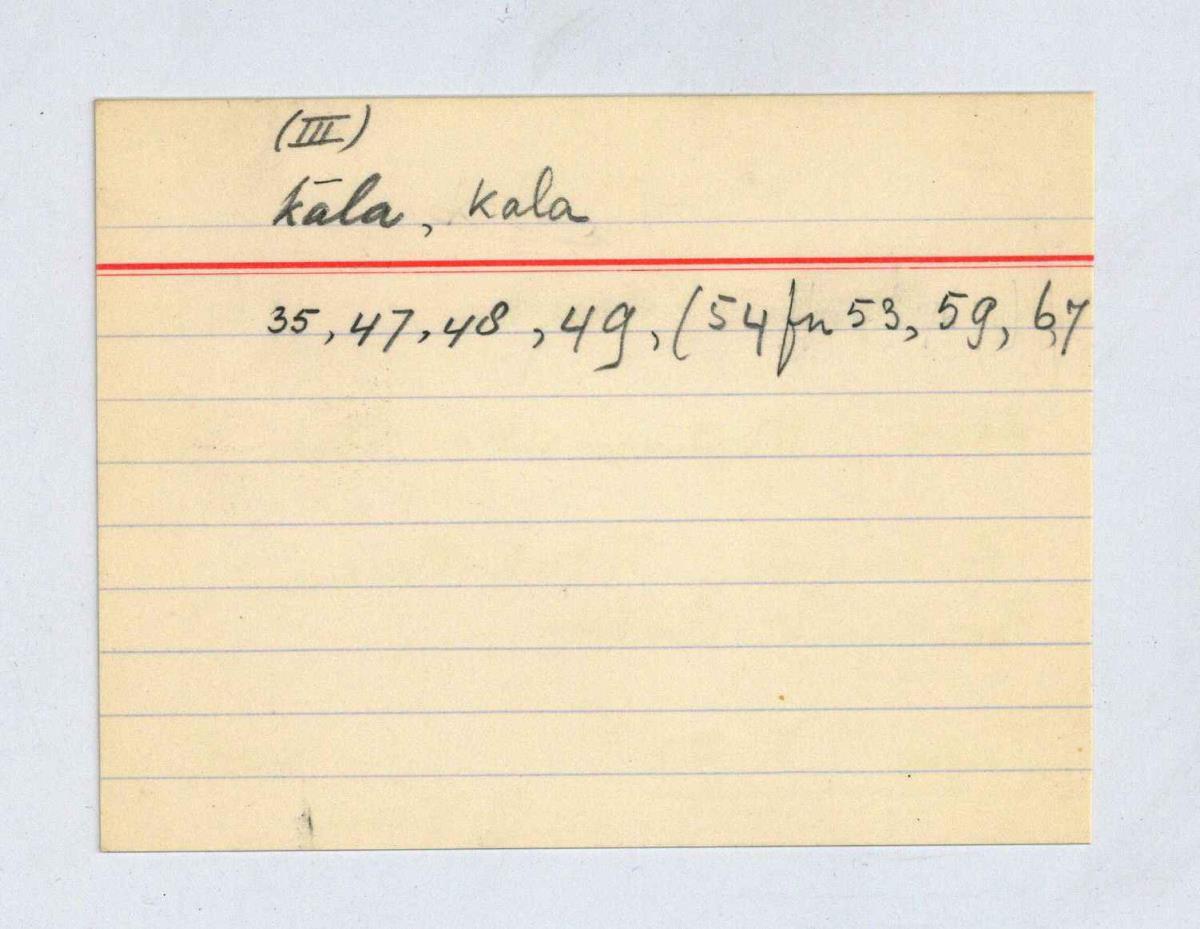 (III)
kāla, kala
35, 47, 48, 49, (54 fn 53, 59, 67